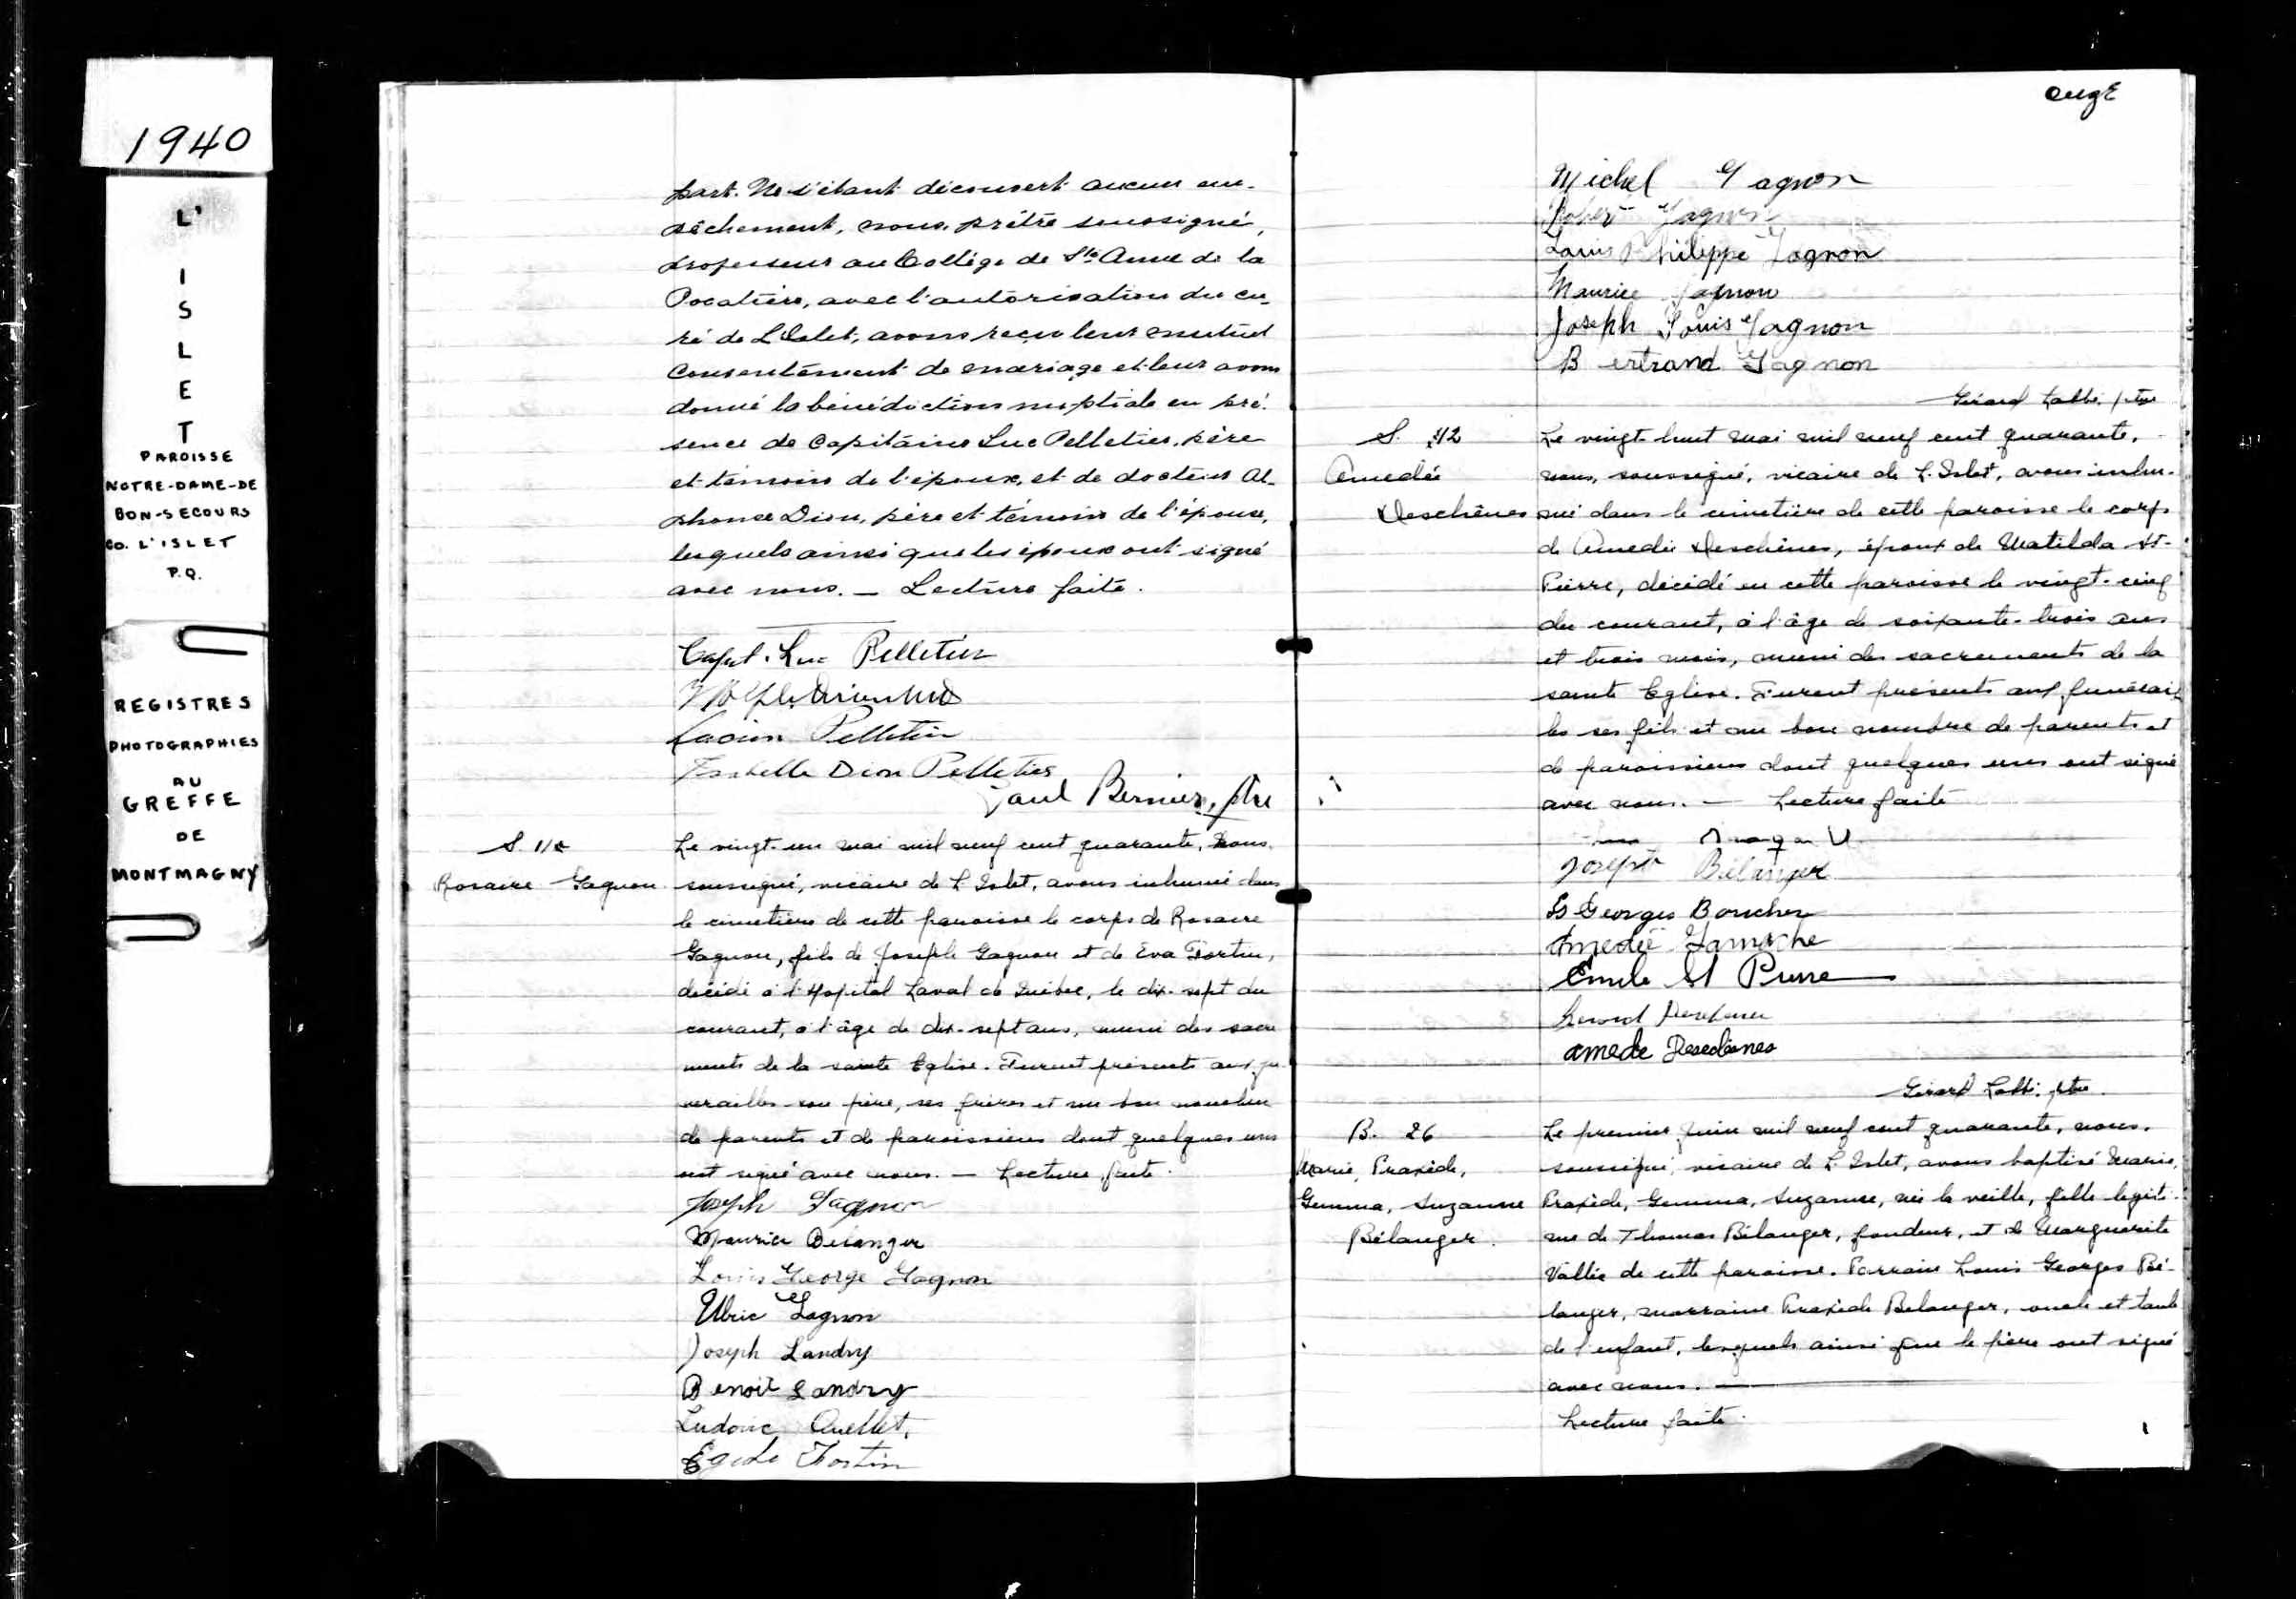 1940
L'
I
S
L
E
T
PAROISSE
NOTRE-DAME-DE
BON-SECOURS
CO. L'ISLET
P.Q.
REGISTRES
PHOTOGRAPHIES
AU
GREFFE
DE
MONTMAGNY
part. Ne s'étant découvert aucun em-
pêchement, nous, prêtre soussigné,
professeur au Collège de Ste Anne de la
Pocatière, avec l'autorisation du cu-
ré de L'Islet, avons reçu leur mutuel
consentement de mariage et leur avons
donné la bénédiction nuptiale en pré-
sence de Capitaine Luc Pelletier, père
et témoin de l'époux, et de docteur Al-
phonse Dion, père et témoin de l'épouse,
lesquels ainsi que les époux ont signé
avec nous. — Lecture faite.
Capt. Luc Pelletier
Pelletier
Dion Pelletier
Paul Bernier, ptre
S. 11
Rosaire Gagnon
Le vingt-un mai mil neuf cent quarante, nous,
soussigné, vicaire de L'Islet, avons inhumé dans
le cimetière de cette paroisse le corps de Rosaire
Gagnon, fils de Joseph Gagnon et de Eva Fortin,
décédé à l'Hopital Laval de Québec, le dix-sept du
courant, à l'âge de dix-sept ans, muni des sacre
ments de la sainte Eglise. Furent présents aux fu-
nerailles son père, ses frères et un bon nombre
de parents et de paroissiens dont quelques uns
ont signé avec nous. — Lecture faite.
Joseph Gagnon
Maurice Bélanger
Louis George Gagnon
Ulric Gagnon
Joseph Landry
Benoit Landry
Ludovic Ouellet,
Egide Fortin
onze
Michel Gagnon
Robert Gagnon
Louis Philippe Gagnon
Maurice Gagnon
Joseph Louis Gagnon
Bertrand Gagnon
Gérard Labbé, ptre
S. 12
Amedée
Deschênes
Le vingt-huit mai mil neuf cent quarante,
nous, soussigné, vicaire de L'Islet, avons inhu-
mé dans le cimetière de cette paroisse le corps
de Amedée Deschênes, époux de Matilda St-
Pierre, décédé en cette paroisse le vingt-cinq
du courant, à l'âge de soixante-trois ans
et trois mois, muni des sacrements de la
sainte Eglise. Furent présents aux funérail-
les ses fils et un bon nombre de parents et
de paroissiens dont quelques uns ont signé
avec nous. — Lecture faite
Joseph Bélanger
Ls Georges Boucher
Amedée Gamache
Emile St Pierre
Gerard Deschenes
amede Deschênes
Gérard Labbé, ptre.
B. 26
Marie, Praxède,
Gemma, Suzanne
Bélanger.
Le premier juin mil neuf cent quarante, nous,
soussigné, vicaire de L'Islet, avons baptisé Marie,
Praxède, Gemma, Suzanne, née la veille, fille légiti-
me de Thomas Bélanger, fondeur, et de Marguerite
Vallée de cette paroisse. Parrain Louis Georges Bé-
langer, marraine Praxède Belanger, oncle et tante
de l'enfant, lesquels ainsi que le père ont signé
avec nous. —
Lecture faite.